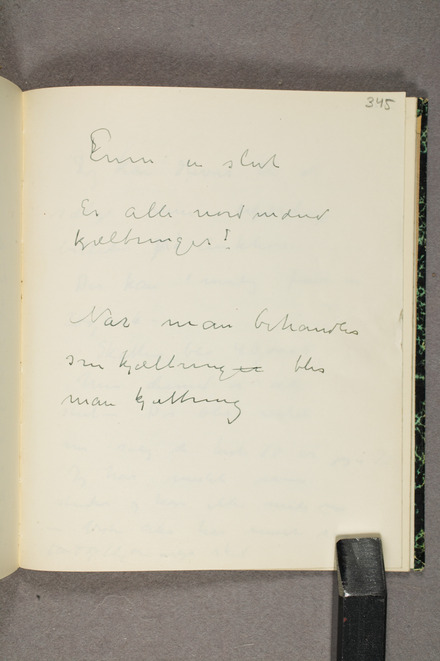 345
Emm er slut
Er alle nordmænd
kjæltringer!
Når man behandles
som kjæltringer blir
man kjæltring